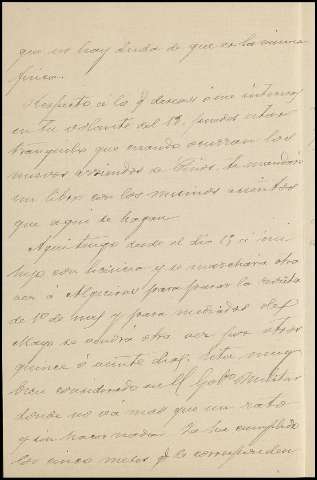 que no hay duda de que es la misma
finca.
Respecto á lo q deseas é me interesas
en tu volante del 13, puedes estar
tranquilo que cuando ocurran los
nuevos arriendos de Pinos, te mandaré
un libro con los mismos asientos
que aqui se hagan.
Aqui tengo desde el dia 13 á mi
hijo con licencia y se marchará otra
vez á Algeciras para pasar la revista
de 1º de mes y para mediados de
Mayo se vendrá otra vez por otros
quince ó veinte dias. Esta muy
bien considerado en el Gobº Militar
donde no vá mas que un rato
y sin hacer nada. Ya ha cumplido
los cinco meses q le corresponden